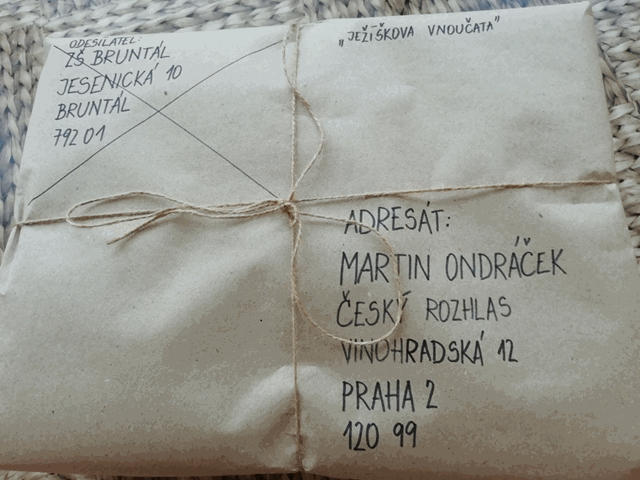 ODESILATEL:
ZŠ BRUNTÁL
JESENICKÁ 10
BRUNTÁL
792 01
"JEŽÍŠKOVA VNOUČATA"
ADRESÁT:
MARTIN ONDRÁČEK
ČESKÝ ROZHLAS
VINOHRADSKÁ 12
PRAHA 2
120 99